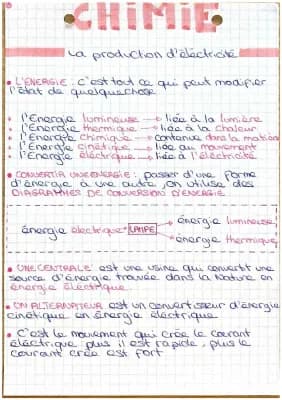 CHIMIE
La production d'électricité
• L'ENERGIE : c'est tout ce qui peut modifier
l'état de quelquechose
• l'Energie lumineuse → liée à la lumière
• l'Energie thermique → liée à la chaleur
• l'Energie chimique → contenue dans la matière
• l'Energie cinétique → liée au mouvement
• l'Energie électrique → liée à l'électricité
• CONVERTIR UNE ENERGIE : passer d'une forme
d'énergie à une autre, on utilise des
DIAGRAMMES DE CONVERSION D'ENERGIE
énergie lumineuse
énergie electrique LAMPE
énergie thermique
• UNE CENTRALE : est une usine qui convertit une
source d'énergie trouvée dans la Nature en
énergie électrique.
• UN ALTERNATEUR est un convertisseur d'énergie
cinétique en énergie électrique
• C'est le mouvement qui crée le courant
électrique : plus il est rapide, plus le
courant crée est fort